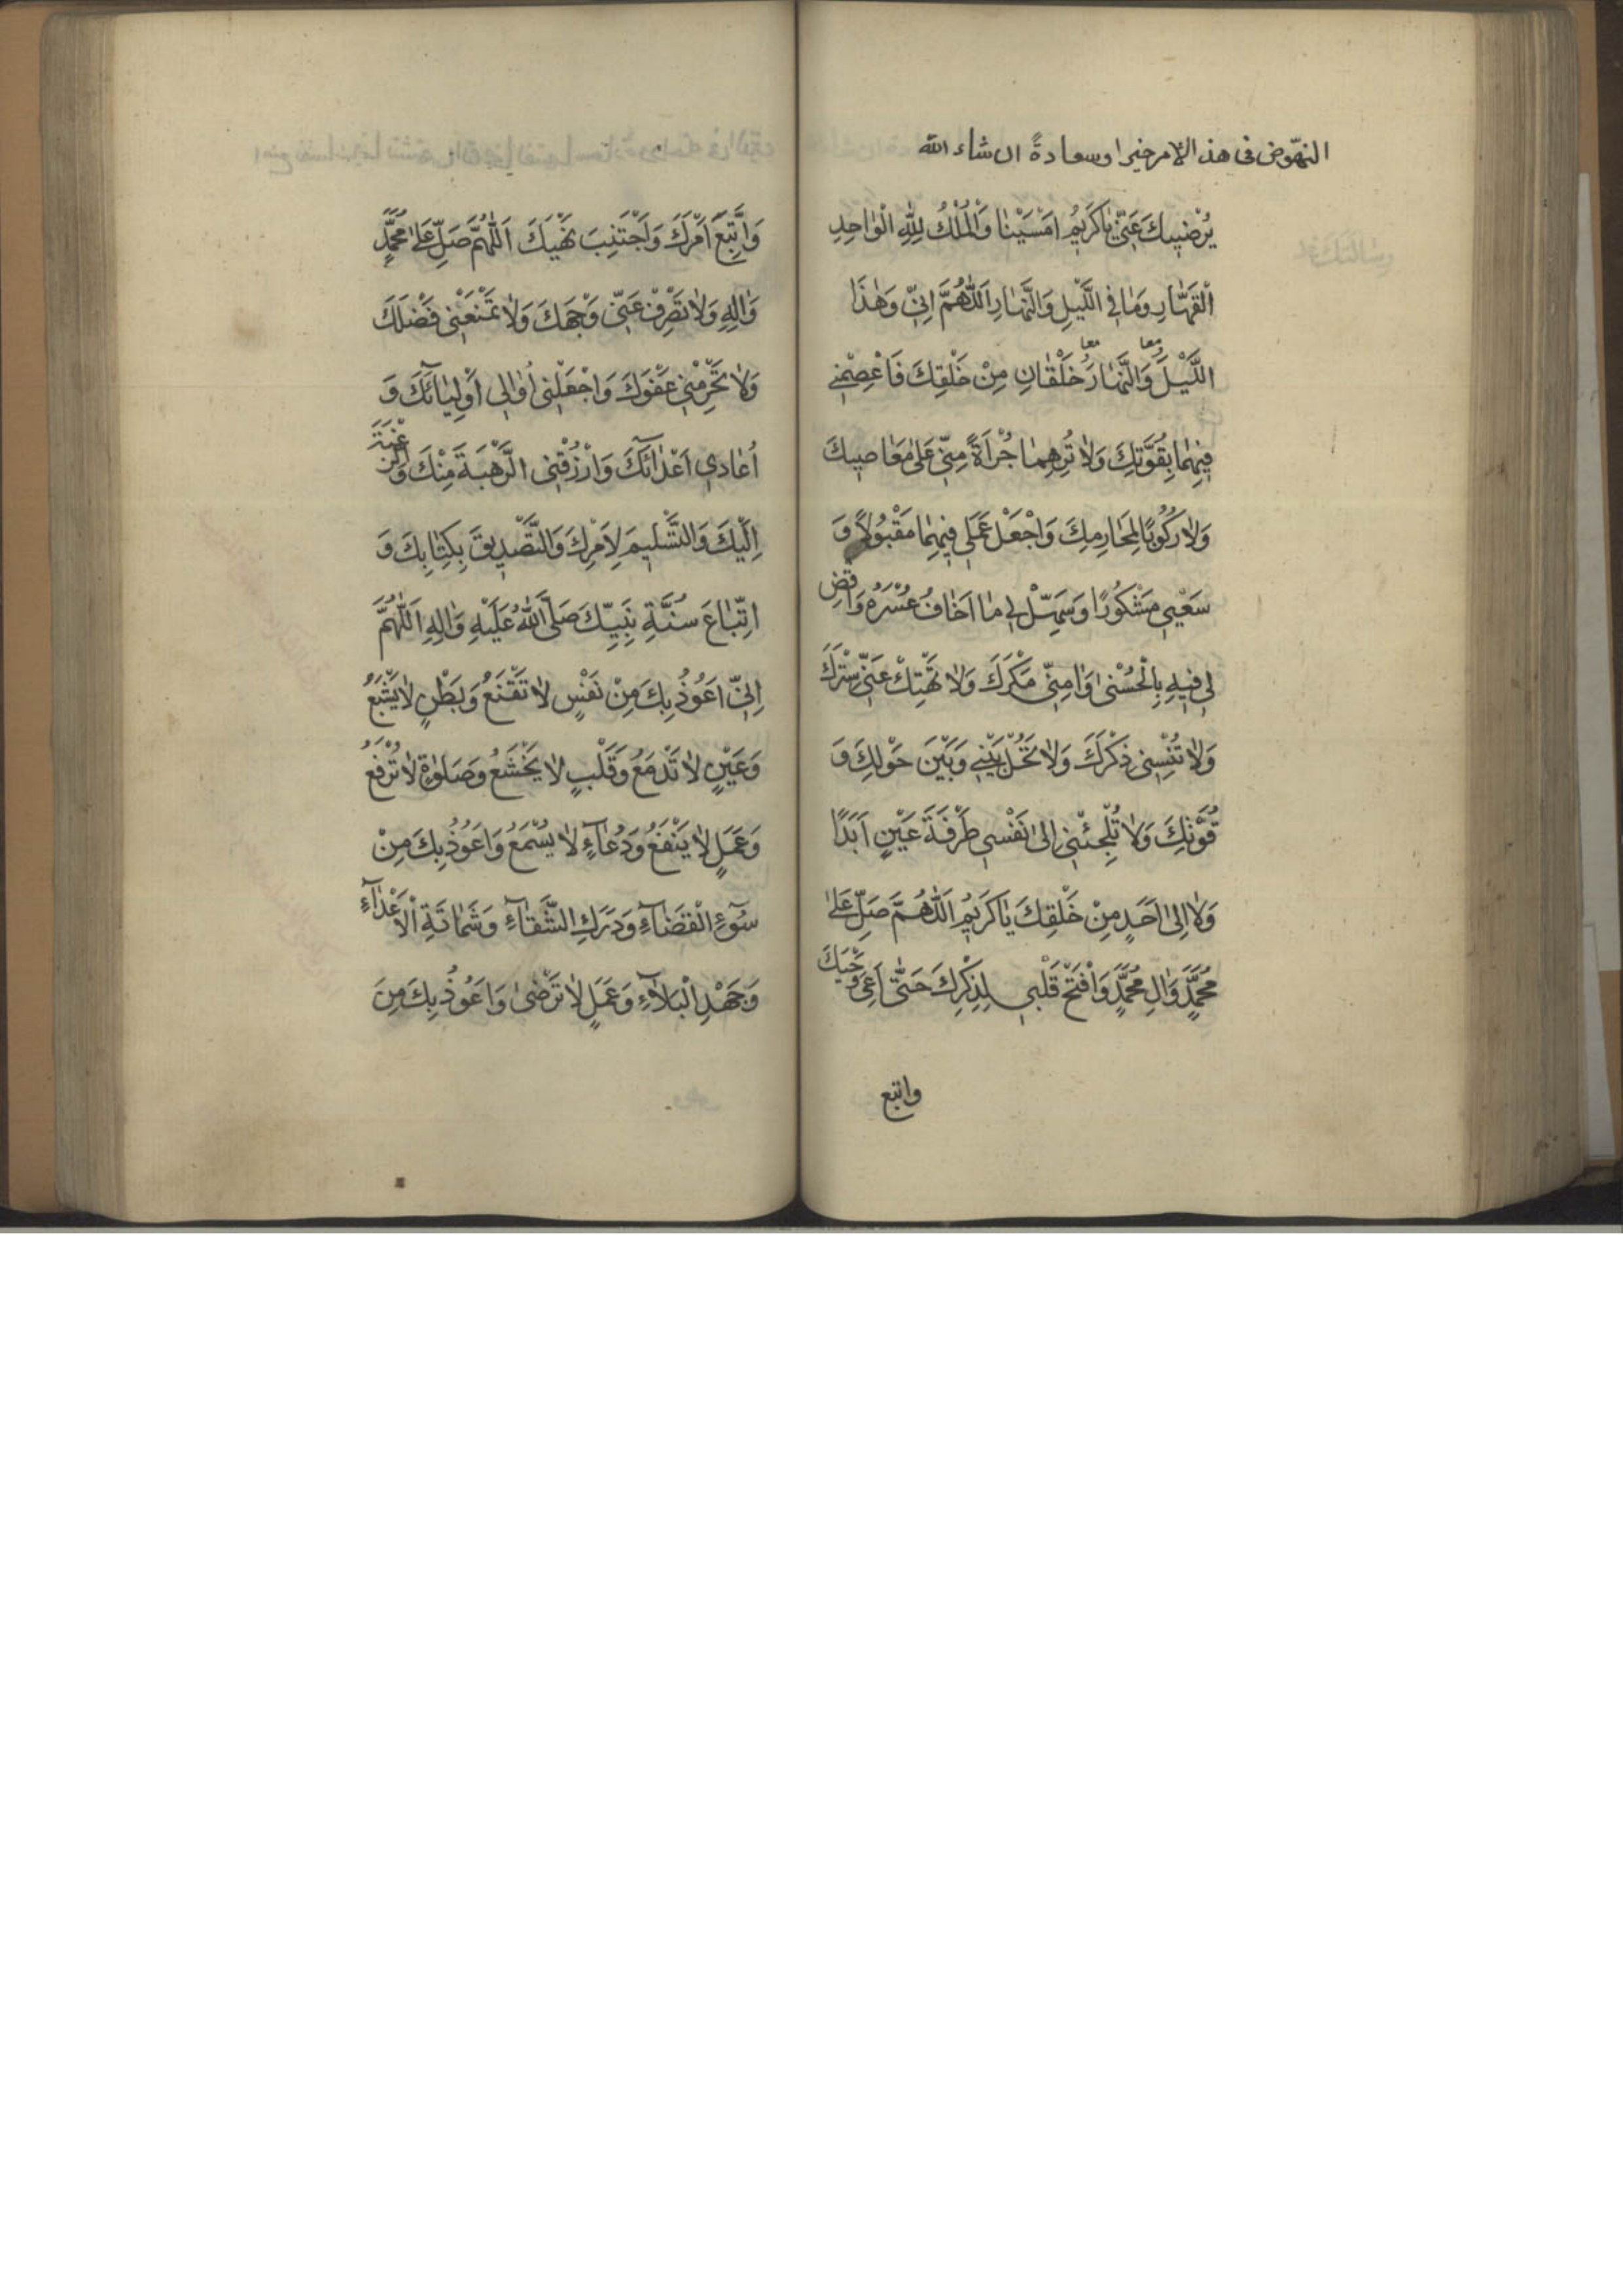 النهّوض فى هذ الامر خيرا وسعادةً ان شاء الله
يُرْضِيكَ عَنّي يٰا كَرِيمُ امَسَيْنٰا وَالْمُلْكُ لِلّٰهِ الْوٰاحِدِ
الْقَهّٰارِ وَمٰا فِي اللَّيْلِ وَالنَّهٰارِ اَللّٰهُمَّ اِنّي وَهٰذَا
اللَّيْلَُ وَالنَّهٰارَُ خَلْقٰانِ مِنْ خَلْقِكَ فَاعْصِمْني
معا معا
فيهِمٰا بِقُوَّتِكَ وَلاٰ تُرِهِمٰا جُرْأَةً مِنّي عَلىٰ مَعٰاصيكَ
وَلاٰ رُكُوبًا لِمَحٰارِمِكَ وَاجْعَلْ عَمَلي فيهِمٰا مَقْبُولاً وَ
سَعْيي مَشْكُورًا وَسَهِّلْ لي مٰا اَخٰافُ عُسْرَهُ وَاقْضِ
لي فيهِ بِالْحُسْنىٰ وَاٰمِنّي مَكْرَكَ وَلاٰ تَهْتِكْ عَنّي سِتْرَكَ
وَلاٰ تُنْسِني ذِكْرَكَ وَلاٰ تَحُلْ بَيْني وَبَيْنَ حَوْلِكَ وَ
قُوَّتِكَ وَلاٰ تُلْجِئْني اِلىٰ نَفْسي طَرْفَةَ عَيْنٍ اَبَدًا
وَلاٰ اِلىٰ اَحَدٍ مِنْ خَلْقِكَ يٰا كَرِيمُ اَللّٰهُمَّ صَلِّ عَلىٰ
مُحَمَّدٍ وَاٰلِ مُحَمَّدٍ وَافْتَحْ قَلْبي لِذِكْرِكَ حَتّىٰ اَعِيَ وَحْيَكَ
واتبع
وَاَتَّبِعَ اَمْرَكَ وَاَجْتَنِبَ نَهْيَكَ اَللّٰهُمَّ صَلِّ عَلىٰ مُحَمَّدٍ
وَاٰلِهِ وَلاٰ تَصْرِفْ عَنّي وَجْهَكَ وَلاٰ تَمْنَعْني فَضْلَكَ
وَلاٰ تَحْرِمْني عَفْوَكَ وَاجْعَلْني اُوٰالي اَوْلِيٰآئَكَ وَ
اُعٰادي اَعْدٰآئَكَ وَارْزُقْني الرَّهْبَةَ مِنْكَ وَالرَّغْبَةَ
اِلَيْكَ وَالتَّسْليمَ لِاَمْرِكَ وَالتَّصْديقَ بِكِتٰابِكَ وَ
اتِّبٰاعَ سُنَّةِ نَبِيِّكَ صَلَّى اللّٰهُ عَلَيْهِ وَاٰلِهِ اَللّٰهُمَّ
اِنّي اَعُوذُ بِكَ مِنْ نَفْسٍ لاٰ تَقْنَعُ وَبَطْنٍ لاٰ يَشْبَعُ
وَعَيْنٍ لاٰ تَدْمَعُ وَقَلْبٍ لاٰ يَخْشَعُ وَصَلوٰةٍ لاٰ تُرْفَعُ
وَعَمَلٍ لاٰ يَنْفَعُ وَدُعٰآءٍ لاٰ يُسْمَعُ وَاَعُوذُ بِكَ مِنْ
سُوٓءِ الْقَضٰآءِ وَدَرَكِ الشَّقٰآءِ وَشَمٰاتَةِ الْاَعْدٰآءِ
وَجَهْدِ الْبَلاٰءِ وَعَمَلٍ لاٰ تَرْضىٰ وَاَعُوذُ بِكَ مِنَ